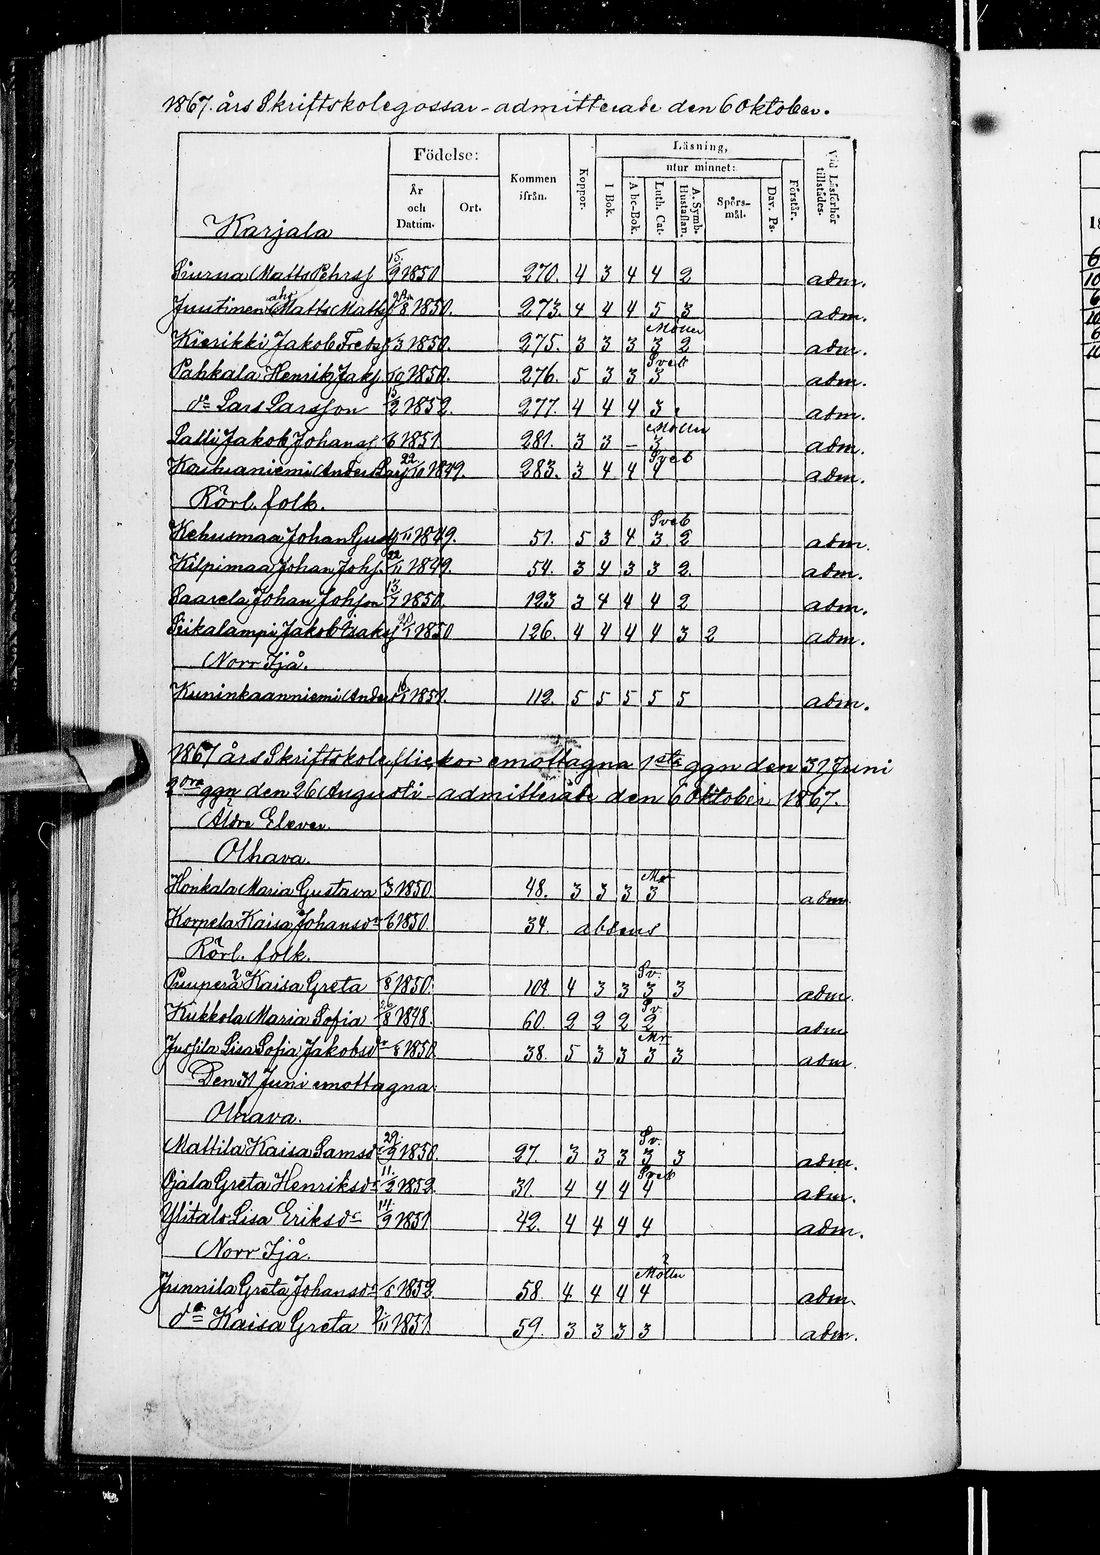 1867. års Skriftskolegossar - admitterade den 6 Oktober.
Födelse: Kommen ifrån. Koppor. Läsning, Vid Läsförhör tillstädes.
År och Datum. Ort. I Bok. utur minnet: Förstår.
A bc-Bok. Luth. Cat. A. Symb. Hustaflan. Spörsmål. Dav. Ps.
Karjala
Siurua Matts Pehrss 15/9 1850 270. 4 3 4 4 2 adm.
Juutinen Matts Matts 1850. 273. 4 4 4 5 3 adm.
Kierikki Jakob 3 1850. 275. 3 3 3 Möller 3 2 adm.
Pahkala Henrik Jaks 10 1850. 276. 5 3 3 Sveb 3 adm.
do Lars Larsson 2 1852. 277. 4 4 4 3 adm.
Jakob Johanss 6 1851. 281. 3 3 – Möller 3 adm.
Anders 22/10 1849. 283. 3 4 4 Sveb 4 adm.
Rörl. folk.
Kehusmaa Johan Gust 11 1849. 51. 5 3 4 Sveb 3 2 adm.
Kilpimaa Johan Johs. 22/11 1849. 54. 3 4 3 3 2. adm.
Saarela Johan Johsson 13/1 1850. 123 3 4 4 4 2 adm.
Jakob 1850 126. 4 4 4 4 3 2 adm.
Norr Ijå.
Kuninkaanniemi Anders 1851. 112. 5 5 5 5 5 adm.
1867 års Skriftskole flickor emottagna 1sta ggn den 31 Juni
2dra ggn den 26 Augusti - admitterade den 6 Oktober 1867.
Äldre Elever.
Olhava.
Honkala Maria Gustava 3 1850. 48. 3 3 3 Mr 3 adm
Korpela Kaisa Johansdr 6 1850. 34. absens
Rörl. folk.
Puuperä Kaisa Greta 8 1850. 104 4 3 3 Sv. 3 3 adm.
Kukkola Maria Sofia 8 1848. 60. 2 2 2 Sv. 2 adm
Jussila Lisa Sofia Jakobsdr 8 1850. 38. 5 3 3 Mr. 3 3 adm.
Den 31 Juni emottagna.
Olhava.
Mattila Kaisa Samsdr 29/9 1850. 27. 3 3 3 Sv. 3 3 adm.
Ojala Greta Henriksdr 11/2 1852. 31. 4 4 4 Sveb 4 adm.
Ylitalo Lisa Eriksdr 14/9 1851 42. 4 4 4 4 adm.
Norr Ijå.
Junnila Greta Johansdr 1852. 58. 4 4 4 Möller 4 adm.
do Kaisa Greta 2/11 1851. 59. 3 3 3 3 adm.